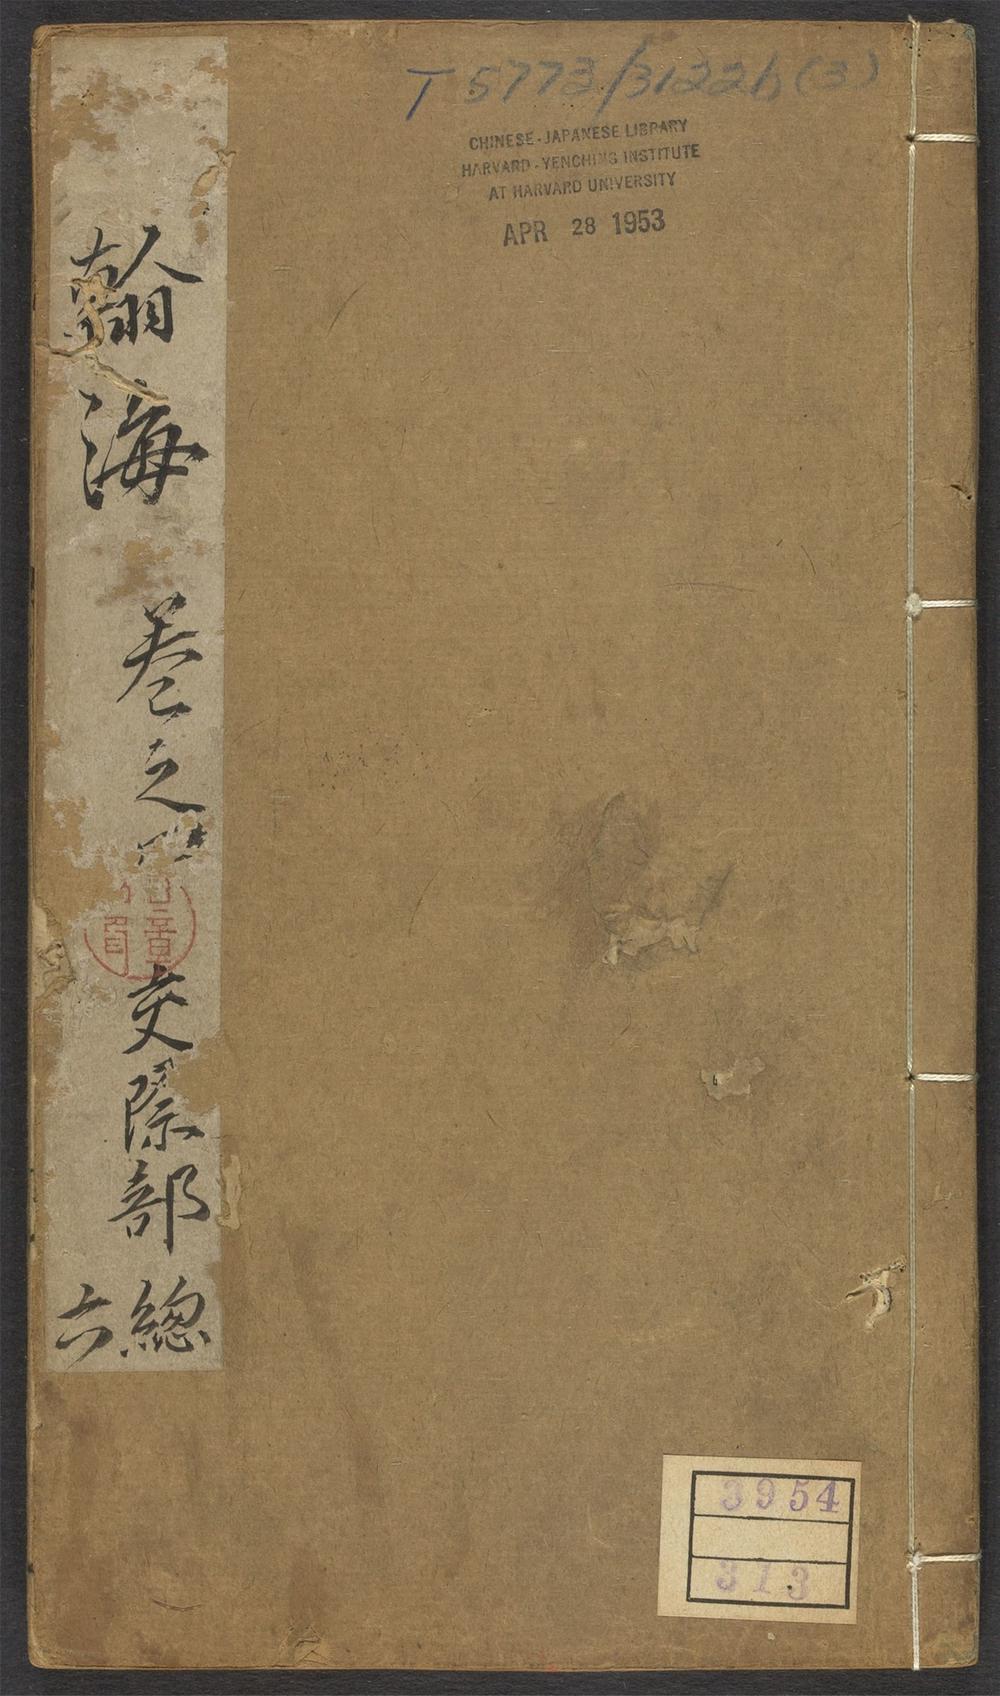 T 5773/3122b (3)
CHINESE-JAPANESE LIBRARY
HARVARD-YENCHING INSTITUTE
AT HARVARD UNIVERSITY
APR 28 1953
翰海
卷之
交際部
總六
3954
313